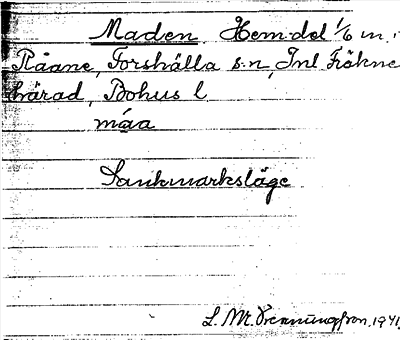 Maden, Hem.del 1/6 m.
Råane, Forshälla s-n, Inl Fräkne
härad, Bohus l.
måa
Sankmarksläge
L. M. Svennungsson, 1941.